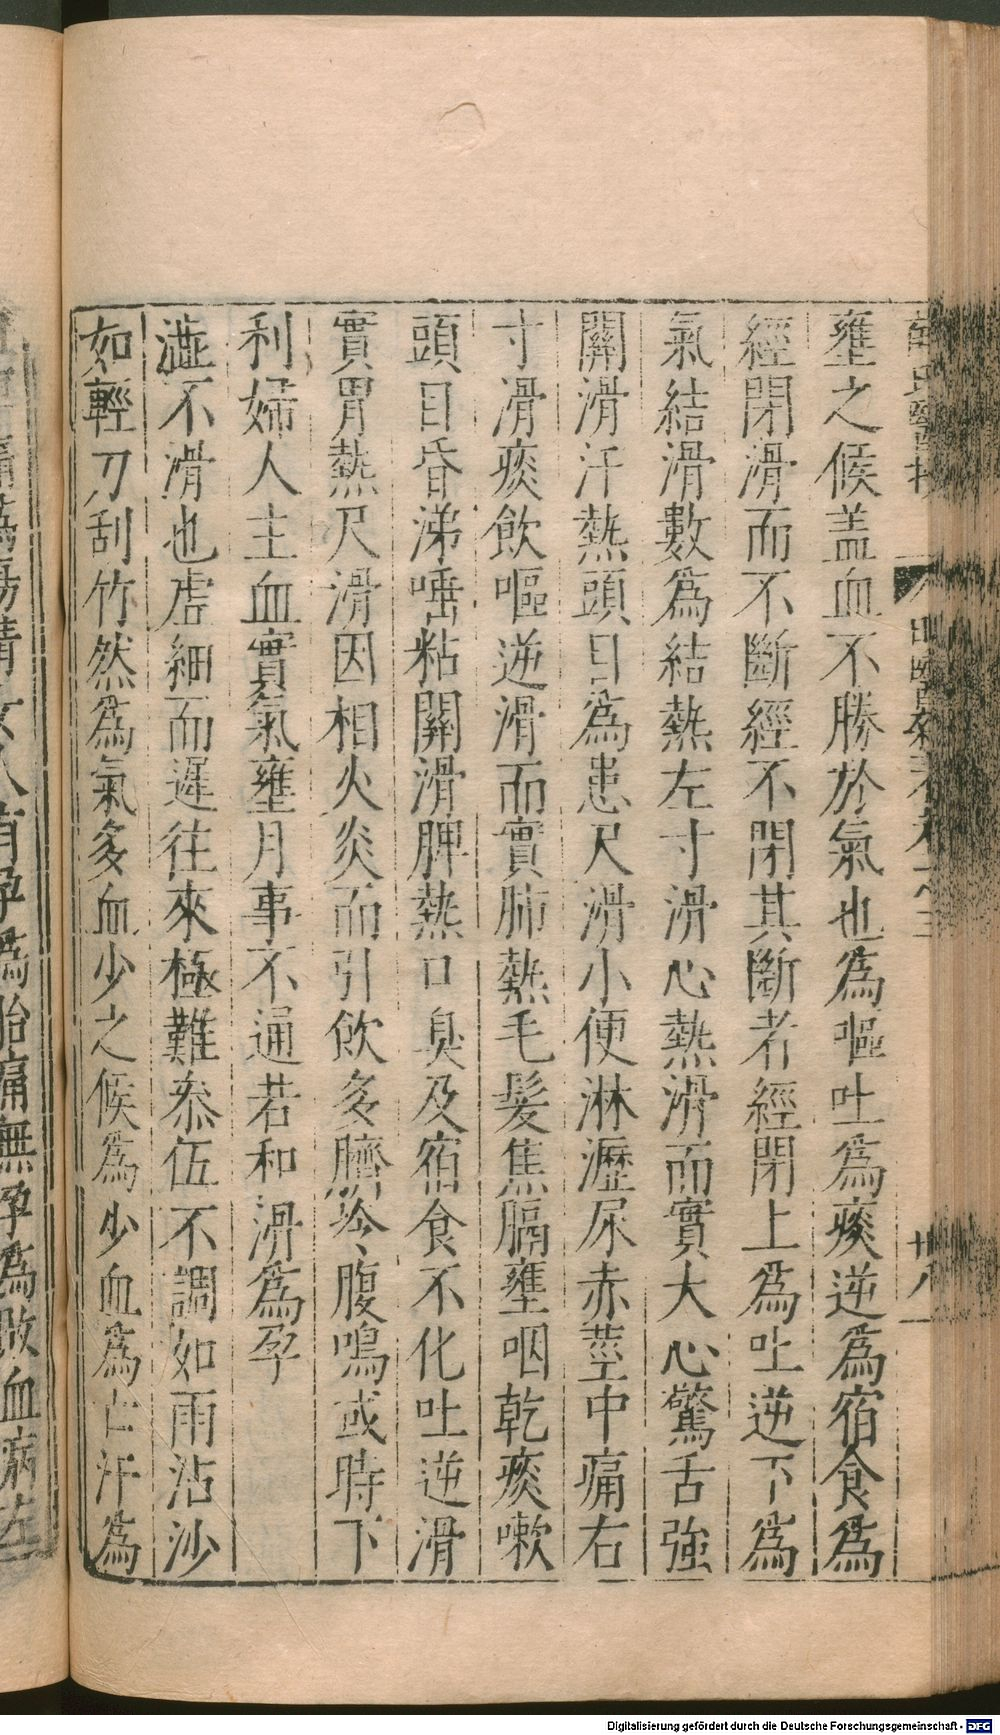 壅之候盖血不勝於氣也為嘔吐為痰逆為宿食為
經閉滑而不斷經不閉其斷者經閉上為吐逆下為
氣結滑數為結熱左寸滑心熱滑而實大心驚舌強
關滑汗熱頭目為患尺滑小便淋瀝尿赤莖中痛右
寸滑痰飲嘔逆滑而實肺熱毛髮焦膈壅咽乾痰嗽
頭目昏涕唾粘關滑脾熱口臭及宿食不化吐逆滑
實胃熱尺滑因相火炎而引飲多臍冷腹鳴或時下
利婦人主血實氣壅月事不通若和滑為孕
澁不滑也虗細而遲往來極難叅伍不調如雨沾沙
如輕刀刮竹然為氣多血少之候為少血為亡汗為
女人有孕為胎痛無孕為敗血病左
Digitalisierung gefördert durch die Deutsche Forschungsgemeinschaft - DFG